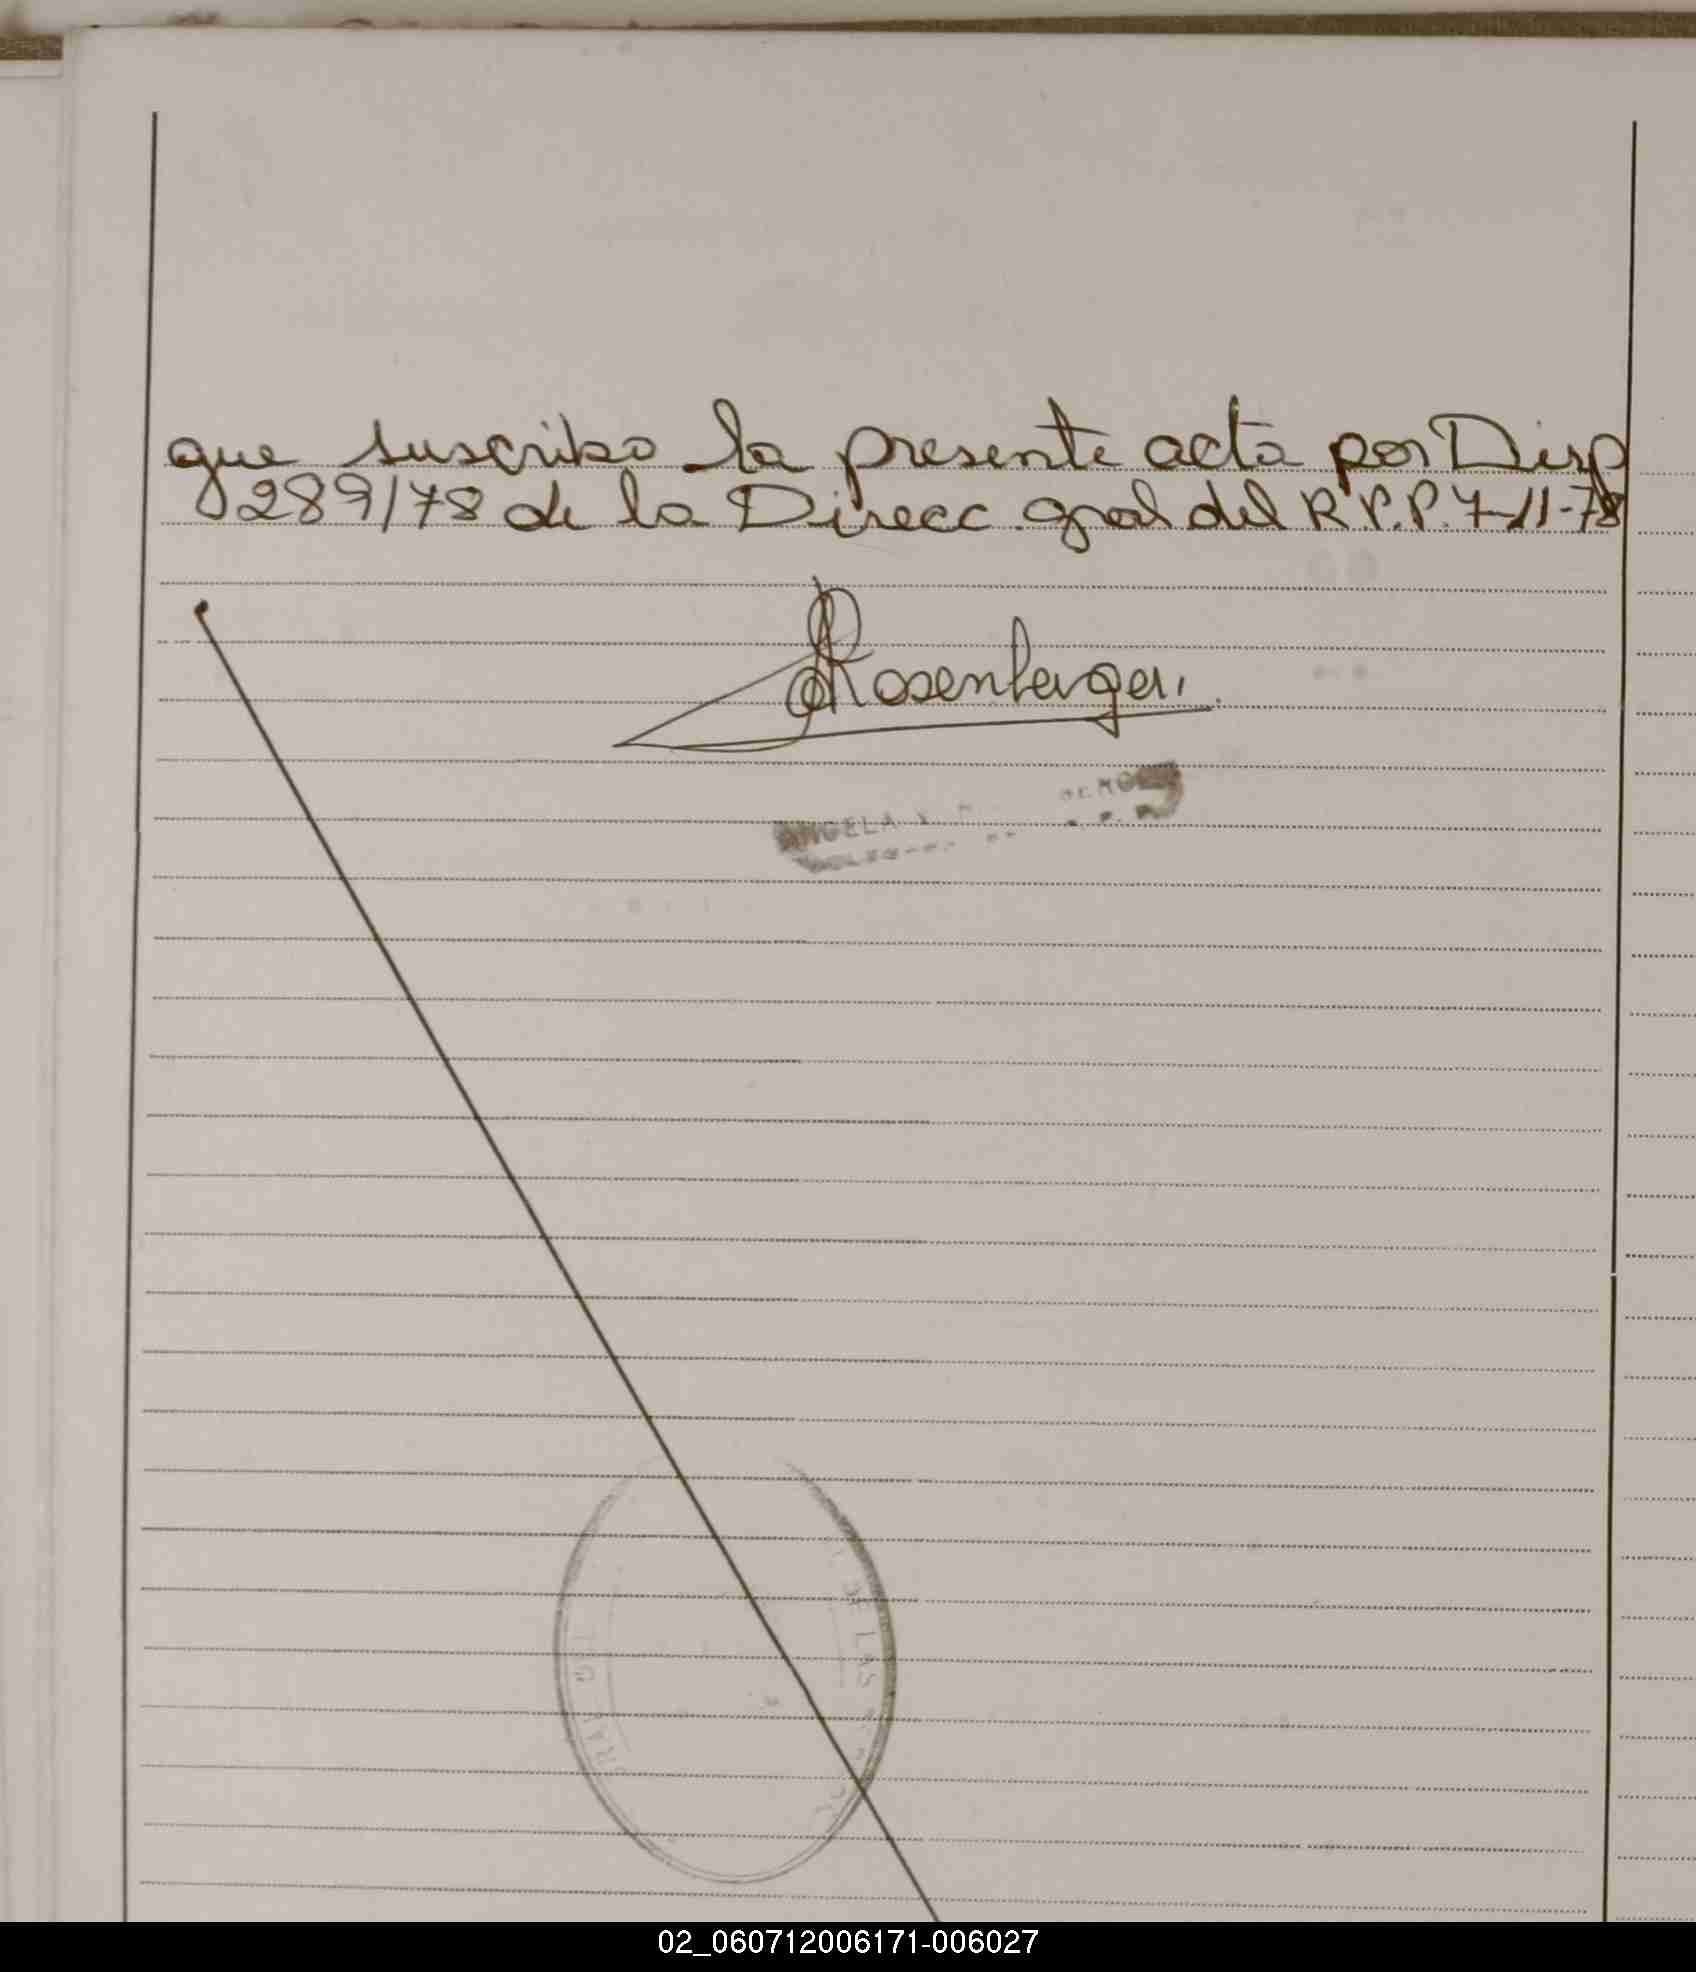 que suscribo la presente acta por Disp
289/78 de la Direcc. gral del R.P.P. 7-11-78
Rosenberger.
ANGELA
DE LAS
02_060712006171-006027